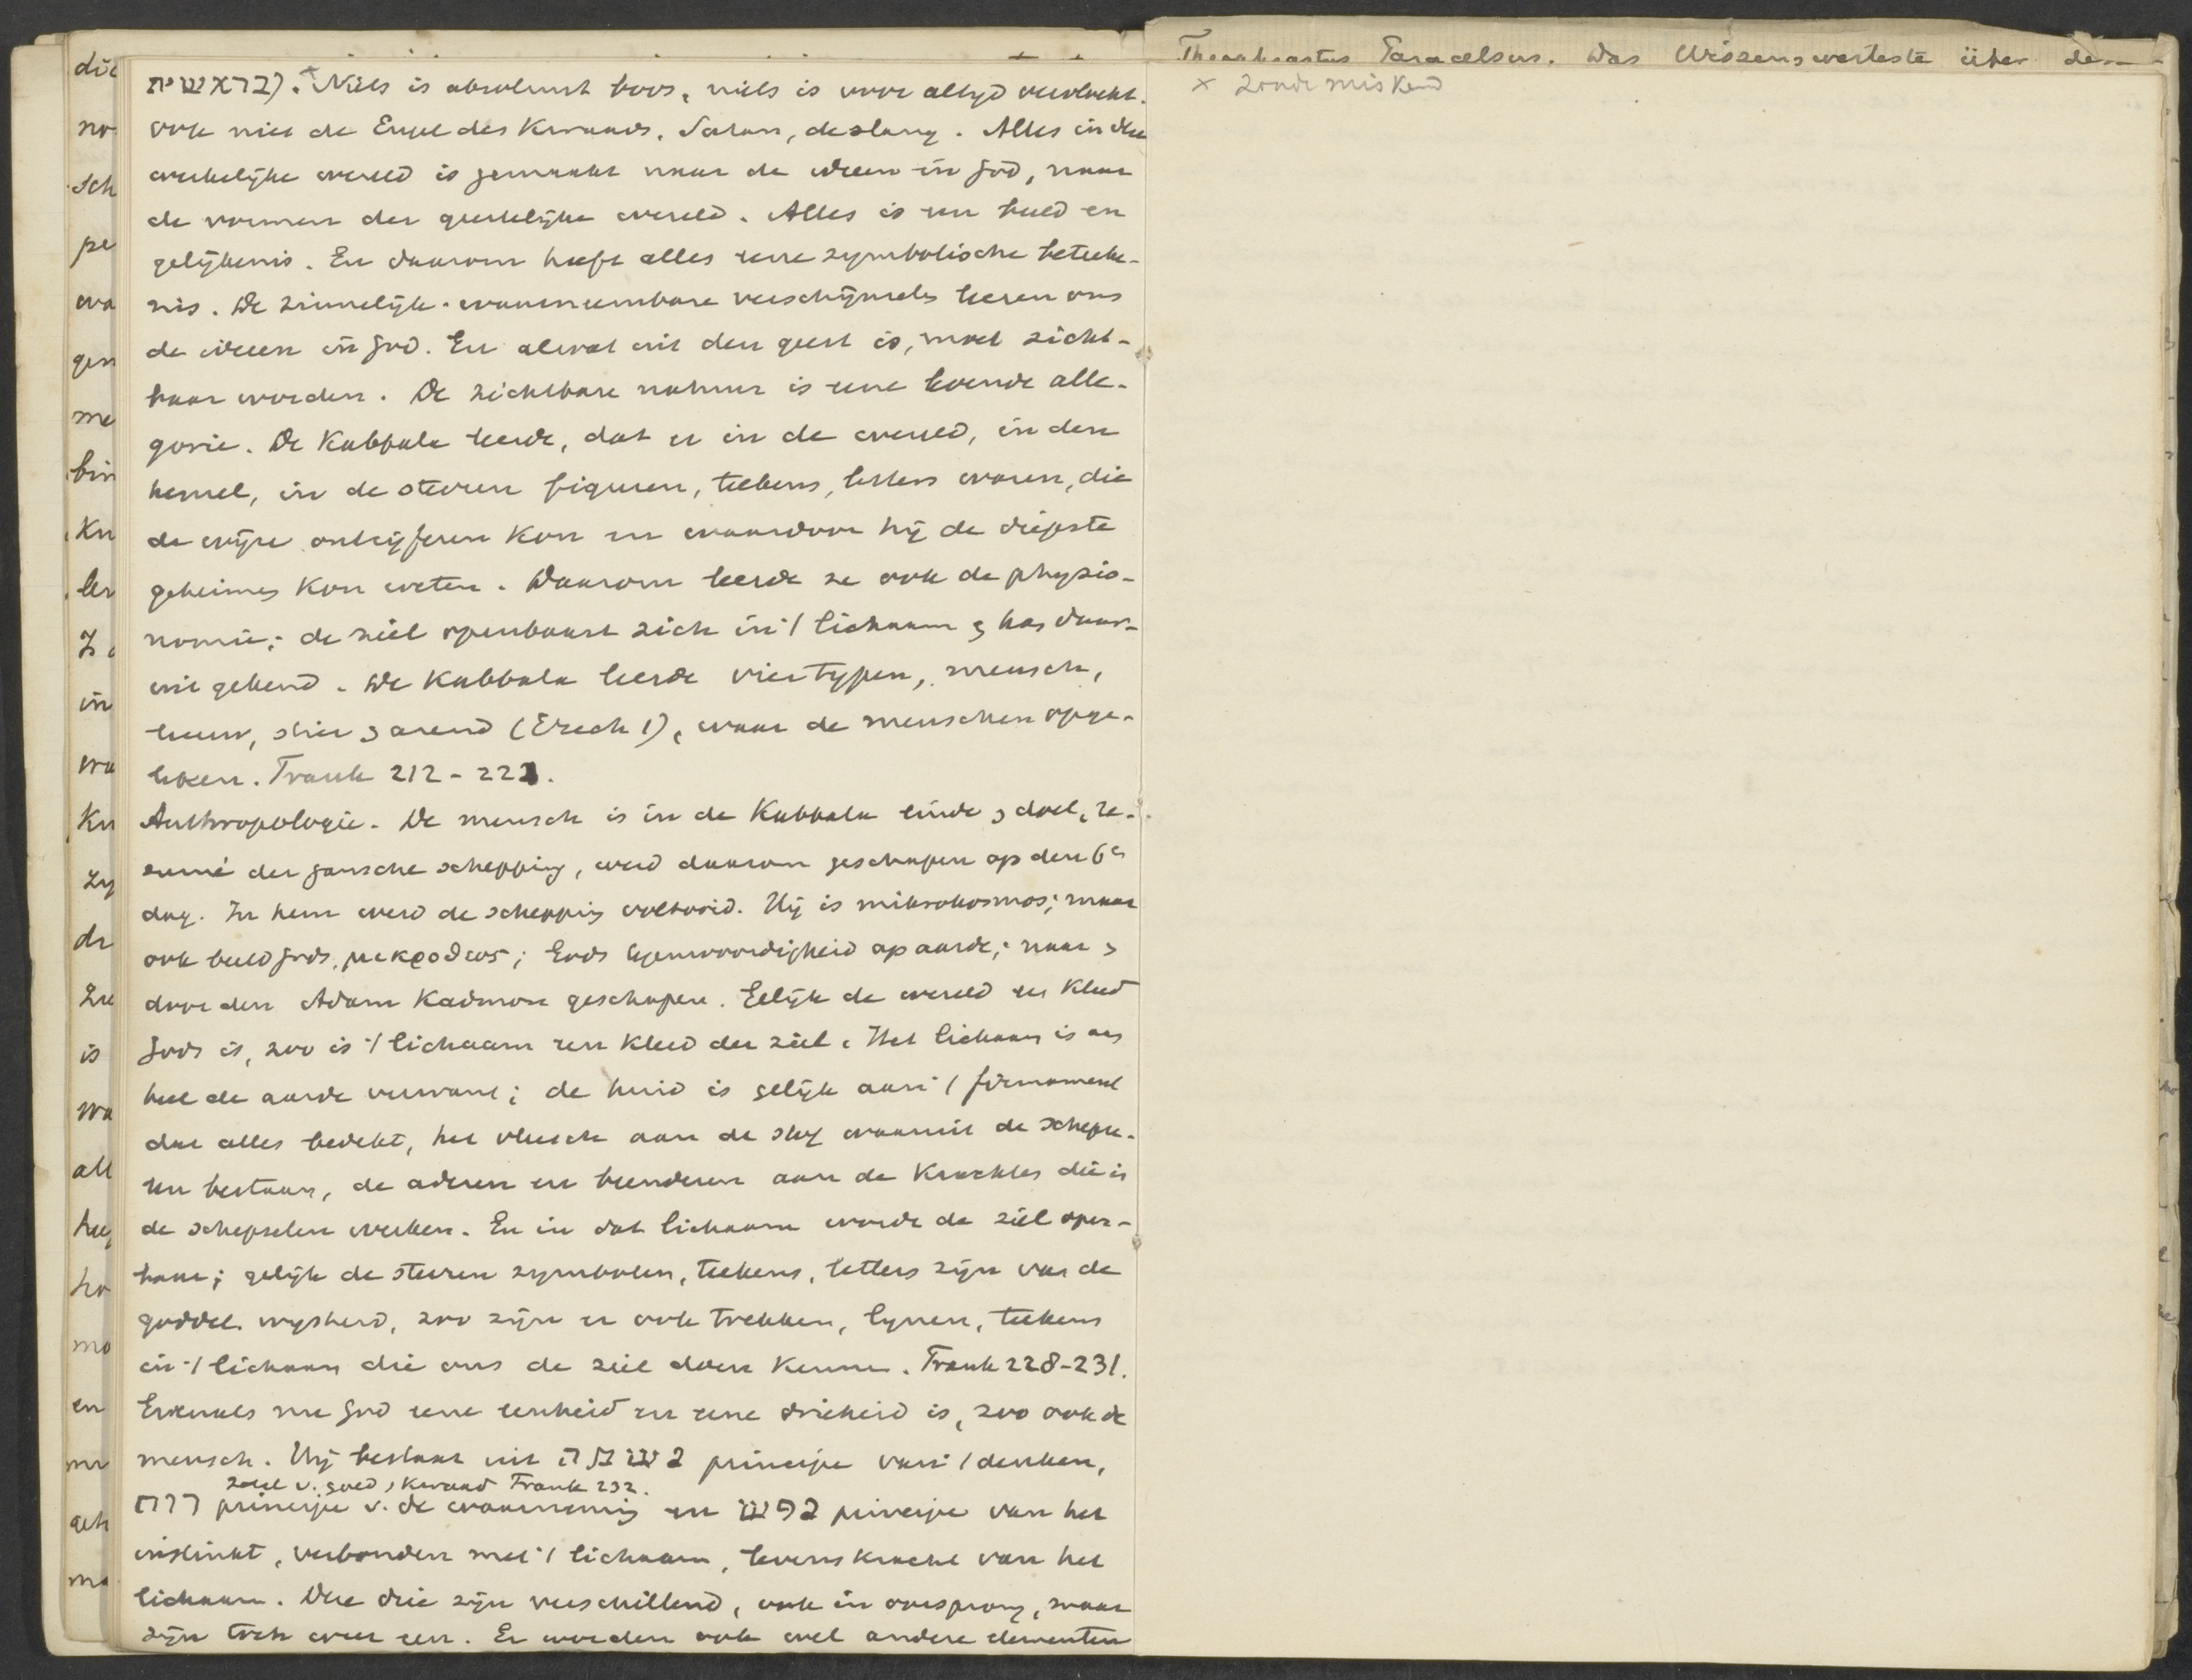 בראשית). × Niets is absoluut boos, niets is voor altyd vervloekt.
ook niet de Engel des Kwaads, Satan, de slang. Alles in deze
werkelijke wereld is gemaakt naar de ideeen in God, naar
de vormen der geestelijke wereld. Alles is een beeld en
gelijkenis. En daarom heeft alles eene symbolische beteeke-
nis. De zinnelijk-waarneembare verschijnselen leeren ons
de ideeen in God. En alwat uit den geest is, moet zicht-
baar worden. De zichtbare natuur is eene levende alle-
gorie. De Kabbala leerde, dat er in de wereld, in den
hemel, in de sterren figuren, teekens, letters waren, die
de wijze ontcijferen kon en waardoor hij de diepste
geheimen kon weten. Daarom leerde ze ook de physio-
nomie; de ziel openbaart zich in 't lichaam & was daar-
uit gekend. De Kabbala leerde vier typen, mensch,
leeuw, stier & arend (Ezech 1), waar de menschen opge-
leken. Frank 212-222.
Anthropologie. De mensch is in de Kabbala einde & doel, re-
sumé der gansche schepping, werd daarom geschapen op den 6n
dag. In hem werd de schepping voltooid. Hij is mikrokosmos; maar
ook beeld Gods, μικροθεος; Gods tegenwoordigheid op aarde; naar &
door den Adam Kadmon geschapen. Gelijk de wereld een kleed
Gods is, zoo is 't lichaam een kleed der ziel. Het lichaam is aan
heel de aarde verwant; de huid is gelijk aan 't firmament
dat alles bedekt, het vleesch aan de stof waaruit de schepse-
len bestaan, de aderen en beenderen aan de krachten die in
de schepselen werken. En in dat lichaam wordt de ziel open-
baar; gelijk de sterren symbolen, teekens, letters zijn van de
goddel. wysheid, zoo zijn er ook trekken, lynen, teekens
in 't lichaam die ons de ziel doen kennen. Frank 228-231.
Evenals nu God eene eenheid en eene drieheid is, zoo ook de
mensch. Hij bestaat uit נשמה principe van 't denken,
zetel v. goed & kwaad Frank 232.
רוח principe v. de waarneming en נפש principe van het
instinkt, verbonden met 't lichaam, levenskracht van het
lichaam. Deze drie zijn verschillend, ook in oorsprong, maar
zijn toch weer een. Er worden ook wel andere elementen
Theophrastus Paracelsus. Das Wissenswerteste über
× zonde miskend